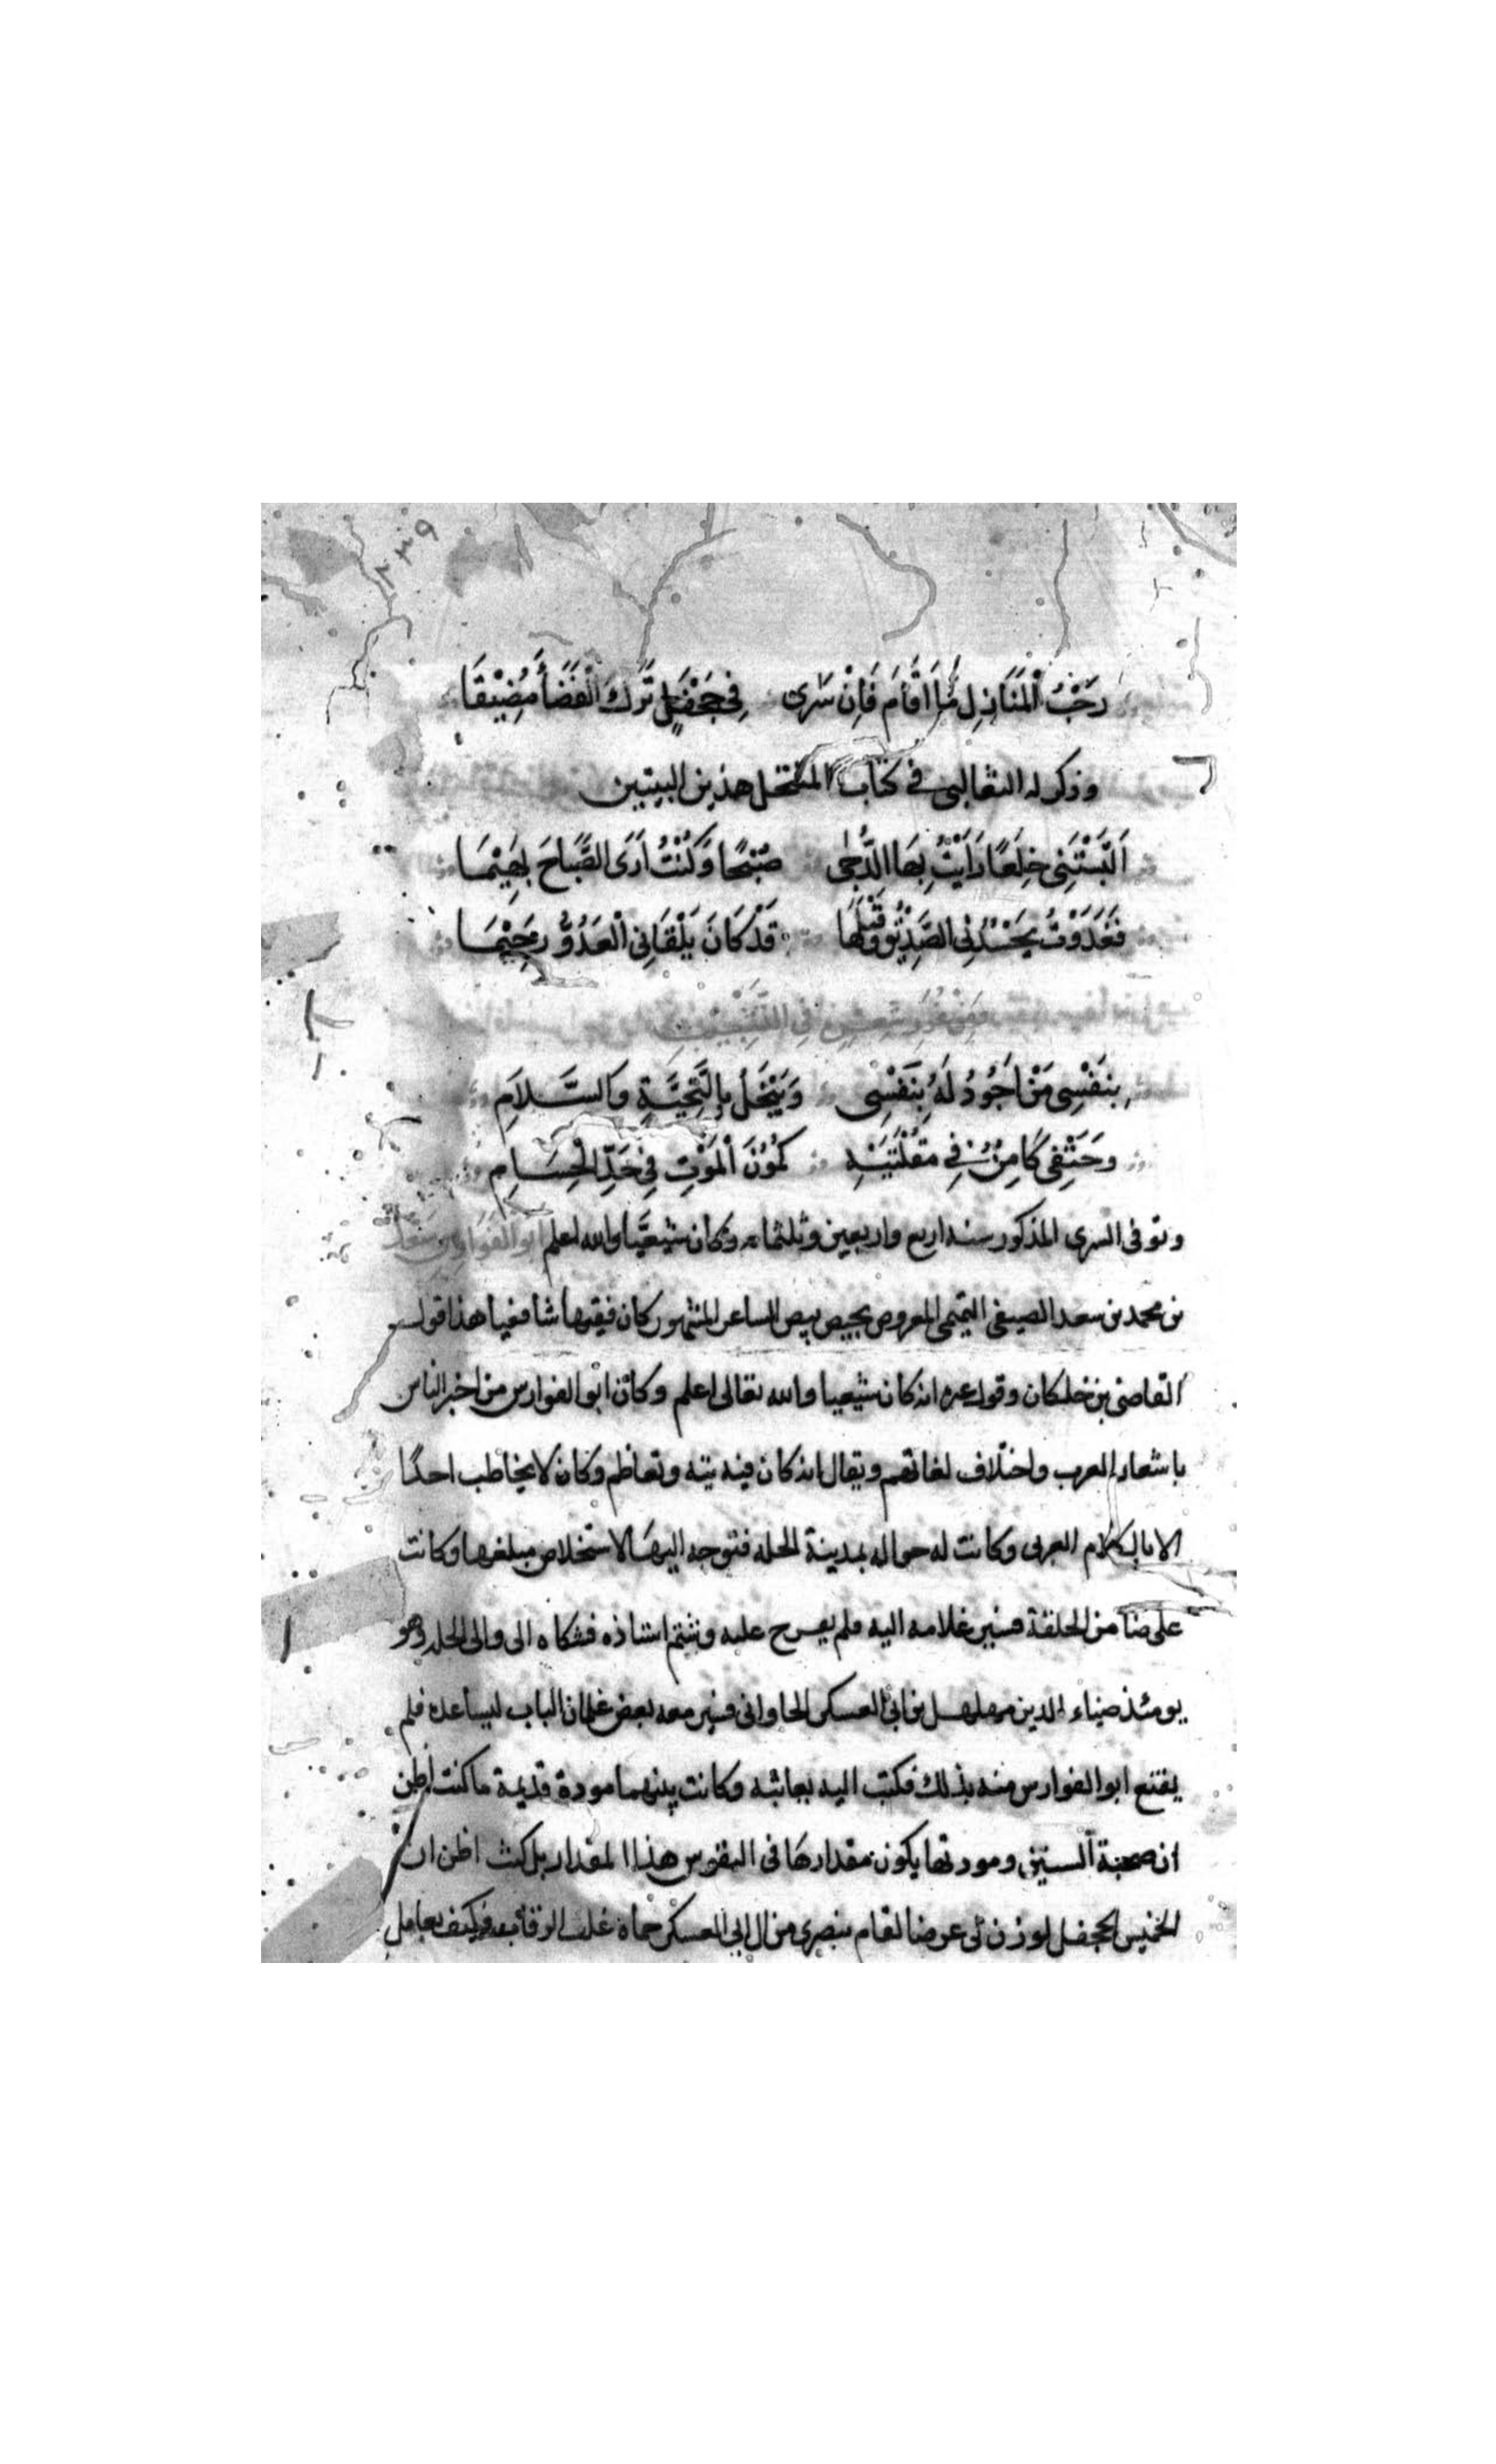 ٢٣٩
رَحْبُ الْمَنَازِلِ مَا اَقَامَ فَاِنْ سَرٰى فِي جَحْفَلٍ تَرَكَ الْفَضَأَ مُضِيْقَا
وذكر له الثعالبى في كتاب المنتحل هذين البيتين
اَلْبَسْتَنِى خِلَعًا رَاَيْتُ بِهَا الدُّجٰى صُبْحًا وَكُنْتُ اَرَى الصَّبَاحَ بَهِيْمَا
فَغَدَوْتُ يَحْسُدُنِي الصَّدِيْقُ وَقَبْلَهَا قَدْ كَانَ يَلْقَانِي الْعَدُوُّ رَحِيْمَا
وَمِنْ غُرَرِ شِعْرِهِ فِي النَّسِيْبِ
بِنَفْسِى مَنْ اَجُوْدُ لَهُ بِنَفْسِى وَيَبْخَلُ بِالتَّحِيَّةِ وَالسَّلَامِ
وَحَتْفِى كَامِنٌ فِي مُقْلَتَيْهِ كُمُوْنَ الْمَوْتِ فِي حَدِّ الْحُسَامِ
وتوفى السرى المذكور سنه اربع واربعين وثلثمائه وكان شيعيًّا والله اعلم ابو الفوارس سعد
بن محمد بن سعد الصيفى التميمى المعروف بحيص بيص الشاعر المشهور كان فقيها شافعيا هذا قول
القاضى بن خلكان وقول غيره انه كان شيعيا والله تعالى اعلم وكان ابو الفوارس من اخبر الناس
باشعار العرب واختلاف لغاتهم ويقال انه كان فيه تيه وتعاظم وكان لا يخاطب احدًا
الا بالكلام العربى وكانت له حواله بمدينة الحله فتوجه اليها لاستخلاص مبلغها وكانت
على ضامن الحلقة فسير غلامه اليه فلم يعرج عليه وشتم استاذه فشكاه الى والى الحله وهو
يومئذ ضياء الدين مهلهل بن ابى العسكر الجاوانى فسير معه بعض غلمان الباب ليساعده فلم
يقنع ابو الفوارس منه بذلك فكتب اليه يعاتبه وكانت بينهما مودة قديمة ما كنت اظن
ان صحبة السنين ومودتها يكون مقدارها في النفوس هذا المقدار بل كنت اظن ان
الخميس الجحفل لو زن لى عرضا لقام بنصرى من ال ابي العسكر حماة غلب الرقاب فكيف بعامل